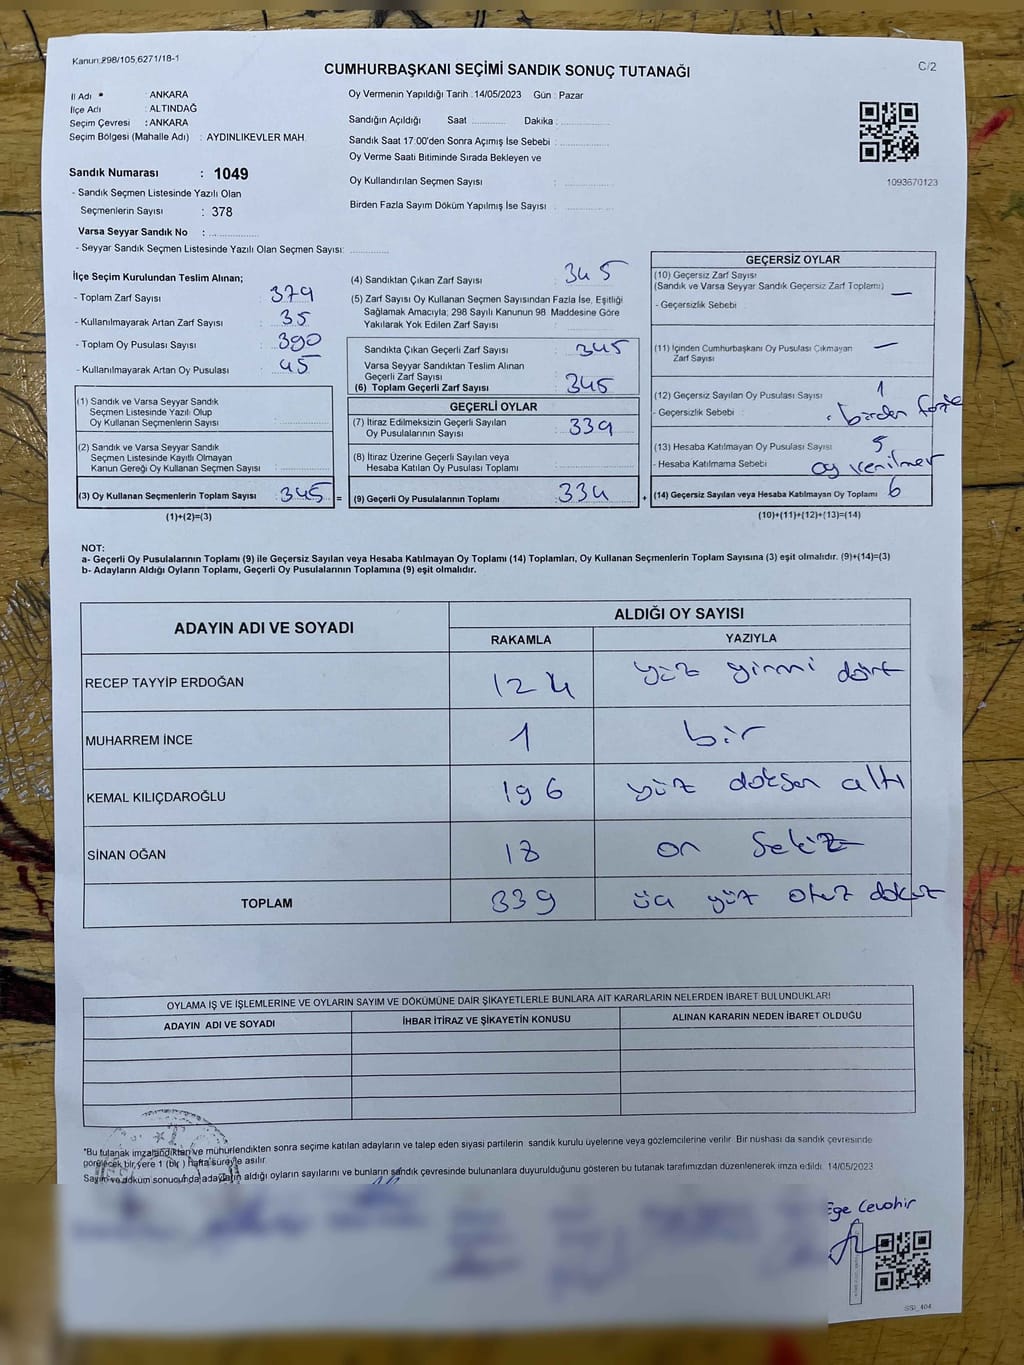 Kanun:298/105,6271/18-1
CUMHURBAŞKANI SEÇİMİ SANDIK SONUÇ TUTANAĞI
C/2
İl Adı : ANKARA
İlçe Adı : ALTINDAĞ
Seçim Çevresi : ANKARA
Seçim Bölgesi (Mahalle Adı) : AYDINLIKEVLER MAH.
Oy Vermenin Yapıldığı Tarih : 14/05/2023 Gün : Pazar
Sandığın Açıldığı Saat ........... Dakika : ...........
Sandık Saat 17:00'den Sonra Açımış İse Sebebi : ...........
Oy Verme Saati Bitiminde Sırada Bekleyen ve
Oy Kullandırılan Seçmen Sayısı : ...........
Birden Fazla Sayım Döküm Yapılmış İse Sayısı : ...........
1093670123
Sandık Numarası : 1049
- Sandık Seçmen Listesinde Yazılı Olan
Seçmenlerin Sayısı : 378
Varsa Seyyar Sandık No : ...........
- Seyyar Sandık Seçmen Listesinde Yazılı Olan Seçmen Sayısı: ...........
İlçe Seçim Kurulundan Teslim Alınan;
- Toplam Zarf Sayısı : 379
- Kullanılmayarak Artan Zarf Sayısı : 35
- Toplam Oy Pusulası Sayısı : 390
- Kullanılmayarak Artan Oy Pusulası : 45
(1) Sandık ve Varsa Seyyar Sandık
Seçmen Listesinde Yazılı Olup
Oy Kullanan Seçmenlerin Sayısı : ...........
(2) Sandık ve Varsa Seyyar Sandık
Seçmen Listesinde Kayıtlı Olmayan
Kanun Gereği Oy Kullanan Seçmen Sayısı : ...........
(3) Oy Kullanan Seçmenlerin Toplam Sayısı : 345 =
(1)+(2)=(3)
(4) Sandıktan Çıkan Zarf Sayısı : 345
(5) Zarf Sayısı Oy Kullanan Seçmen Sayısından Fazla İse, Eşitliği
Sağlamak Amacıyla; 298 Sayılı Kanunun 98. Maddesine Göre
Yakılarak Yok Edilen Zarf Sayısı : ...........
Sandıkta Çıkan Geçerli Zarf Sayısı : 345
Varsa Seyyar Sandıktan Teslim Alınan
Geçerli Zarf Sayısı
(6) Toplam Geçerli Zarf Sayısı : 345
GEÇERLİ OYLAR
(7) İtiraz Edilmeksizin Geçerli Sayılan
Oy Pusulalarının Sayısı : 339
(8) İtiraz Üzerine Geçerli Sayılan veya
Hesaba Katılan Oy Pusulası Toplamı : ...........
(9) Geçerli Oy Pusulalarının Toplamı : 339 +
GEÇERSİZ OYLAR
(10) Geçersiz Zarf Sayısı
(Sandık ve Varsa Seyyar Sandık Geçersiz Zarf Toplamı) —
- Geçersizlik Sebebi
(11) İçinden Cumhurbaşkanı Oy Pusulası Çıkmayan —
Zarf Sayısı
(12) Geçersiz Sayılan Oy Pusulası Sayısı 1
- Geçersizlik Sebebi : birden fazla
(13) Hesaba Katılmayan Oy Pusulası Sayısı 5
- Hesaba Katılmama Sebebi oy verilmer
(14) Geçersiz Sayılan veya Hesaba Katılmayan Oy Toplamı 6
(10)+(11)+(12)+(13)=(14)
NOT:
a- Geçerli Oy Pusulalarının Toplamı (9) ile Geçersiz Sayılan veya Hesaba Katılmayan Oy Toplamı (14) Toplamları, Oy Kullanan Seçmenlerin Toplam Sayısına (3) eşit olmalıdır. (9)+(14)=(3)
b- Adayların Aldığı Oyların Toplamı, Geçerli Oy Pusulalarının Toplamına (9) eşit olmalıdır.
ADAYIN ADI VE SOYADI ALDIĞI OY SAYISI
RAKAMLA YAZIYLA
RECEP TAYYİP ERDOĞAN 124 yüz yirmi dört
MUHARREM İNCE 1 bir
KEMAL KILIÇDAROĞLU 196 yüz doksan altı
SİNAN OĞAN 18 on sekiz
TOPLAM 339 üç yüz otuz dokuz
OYLAMA İŞ VE İŞLEMLERİNE VE OYLARIN SAYIM VE DÖKÜMÜNE DAİR ŞİKAYETLERLE BUNLARA AİT KARARLARIN NELERDEN İBARET BULUNDUKLARI
ADAYIN ADI VE SOYADI İHBAR İTİRAZ VE ŞİKAYETİN KONUSU ALINAN KARARIN NEDEN İBARET OLDUĞU
*Bu tutanak imzalandıktan ve mühürlendikten sonra seçime katılan adayların ve talep eden siyasi partilerin sandık kurulu üyelerine veya gözlemcilerine verilir. Bir nüshası da sandık çevresinde
görülecek bir yere 1 (bir ) hafta süreyle asılır.
Sayım ve döküm sonucunda adayların aldığı oyların sayılarını ve bunların sandık çevresinde bulunanlara duyurulduğunu gösteren bu tutanak tarafımızdan düzenlenerek imza edildi. 14/05/2023
Ege Cevahir
SSİ_404